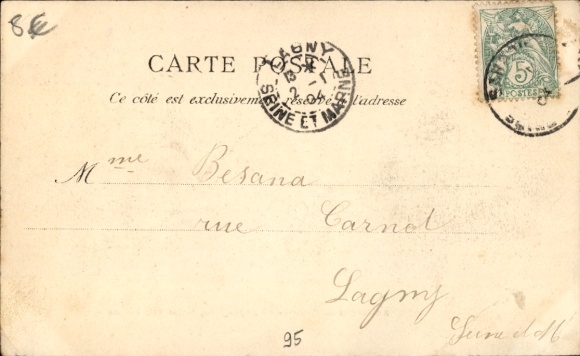 8€
CARTE POSTALE
Ce côté est exclusivement réservé à l'adresse
LAGNY
13
2 -1
04
SEINE ET MARNE
5c
POSTES
04
Mme Besana
rue Carnot
Lagny
Seine et M
95